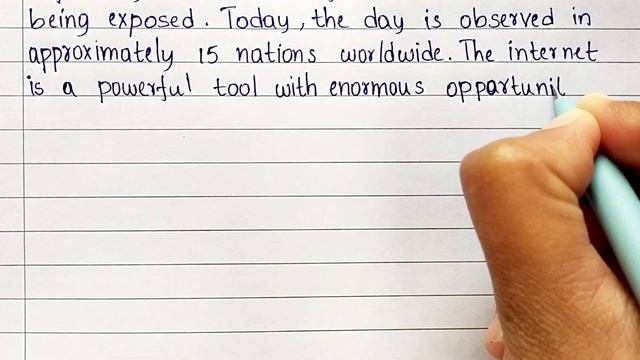 being exposed. Today, the day is observed in
approximately 15 nations worldwide. The internet
is a powerful tool with enormous opportunil